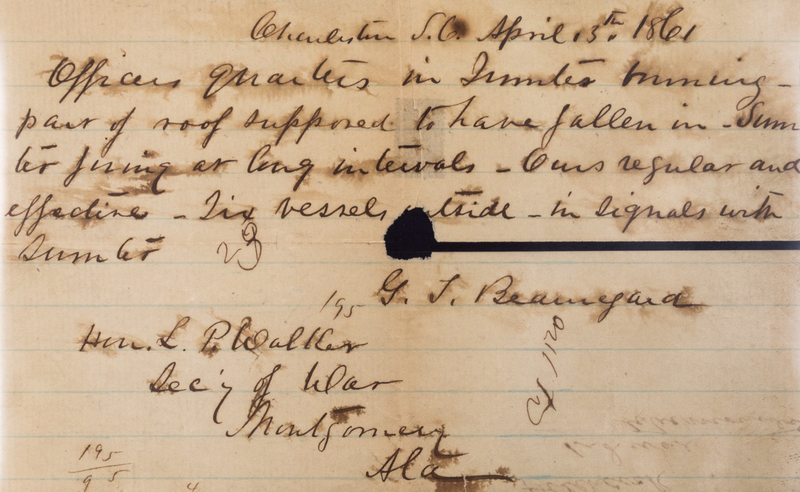 Charleston S.C. April 13th 1861
Officers quarters in Sumter burning -
part of roof supposed to have fallen in - Sum
ter firing at long intervals - Ours regular and
effective - Six vessels outside - in signals with
Sumter 23
G. T. Beauregard
195
Hon. L. P. Walker
Sec'y of War
Montgomery
Ala
195
95